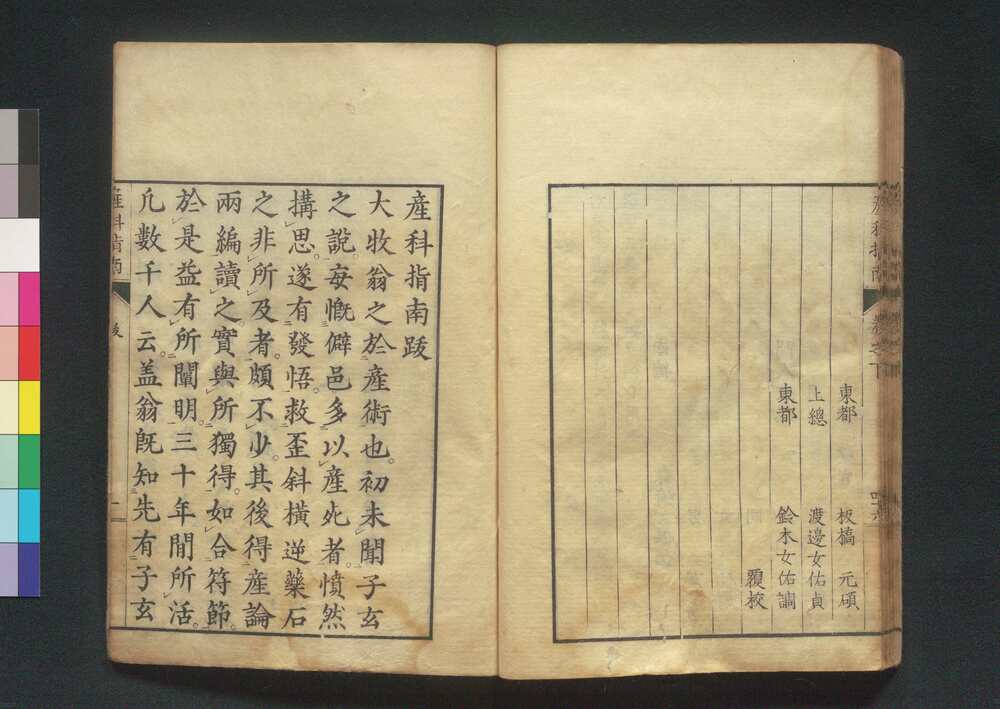 産科指南 卷之下 四六
東都 板橋 元碩
上總 渡邊玄佑貞
東都 鈴木玄佑調
覆校
産科指南跋
大牧翁之於産術也。初未聞子玄
之說。每慨僻邑多以産死者。憤然
搆思。遂有發悟。救歪斜橫逆藥石
之非所及者。頗不少。其後得産論
兩編讀之。實與所獨得。如合符節。
於是益有所闡明。三十年間所活。
凡數千人云。盖翁旣知先有子玄
産科指南 跋 一